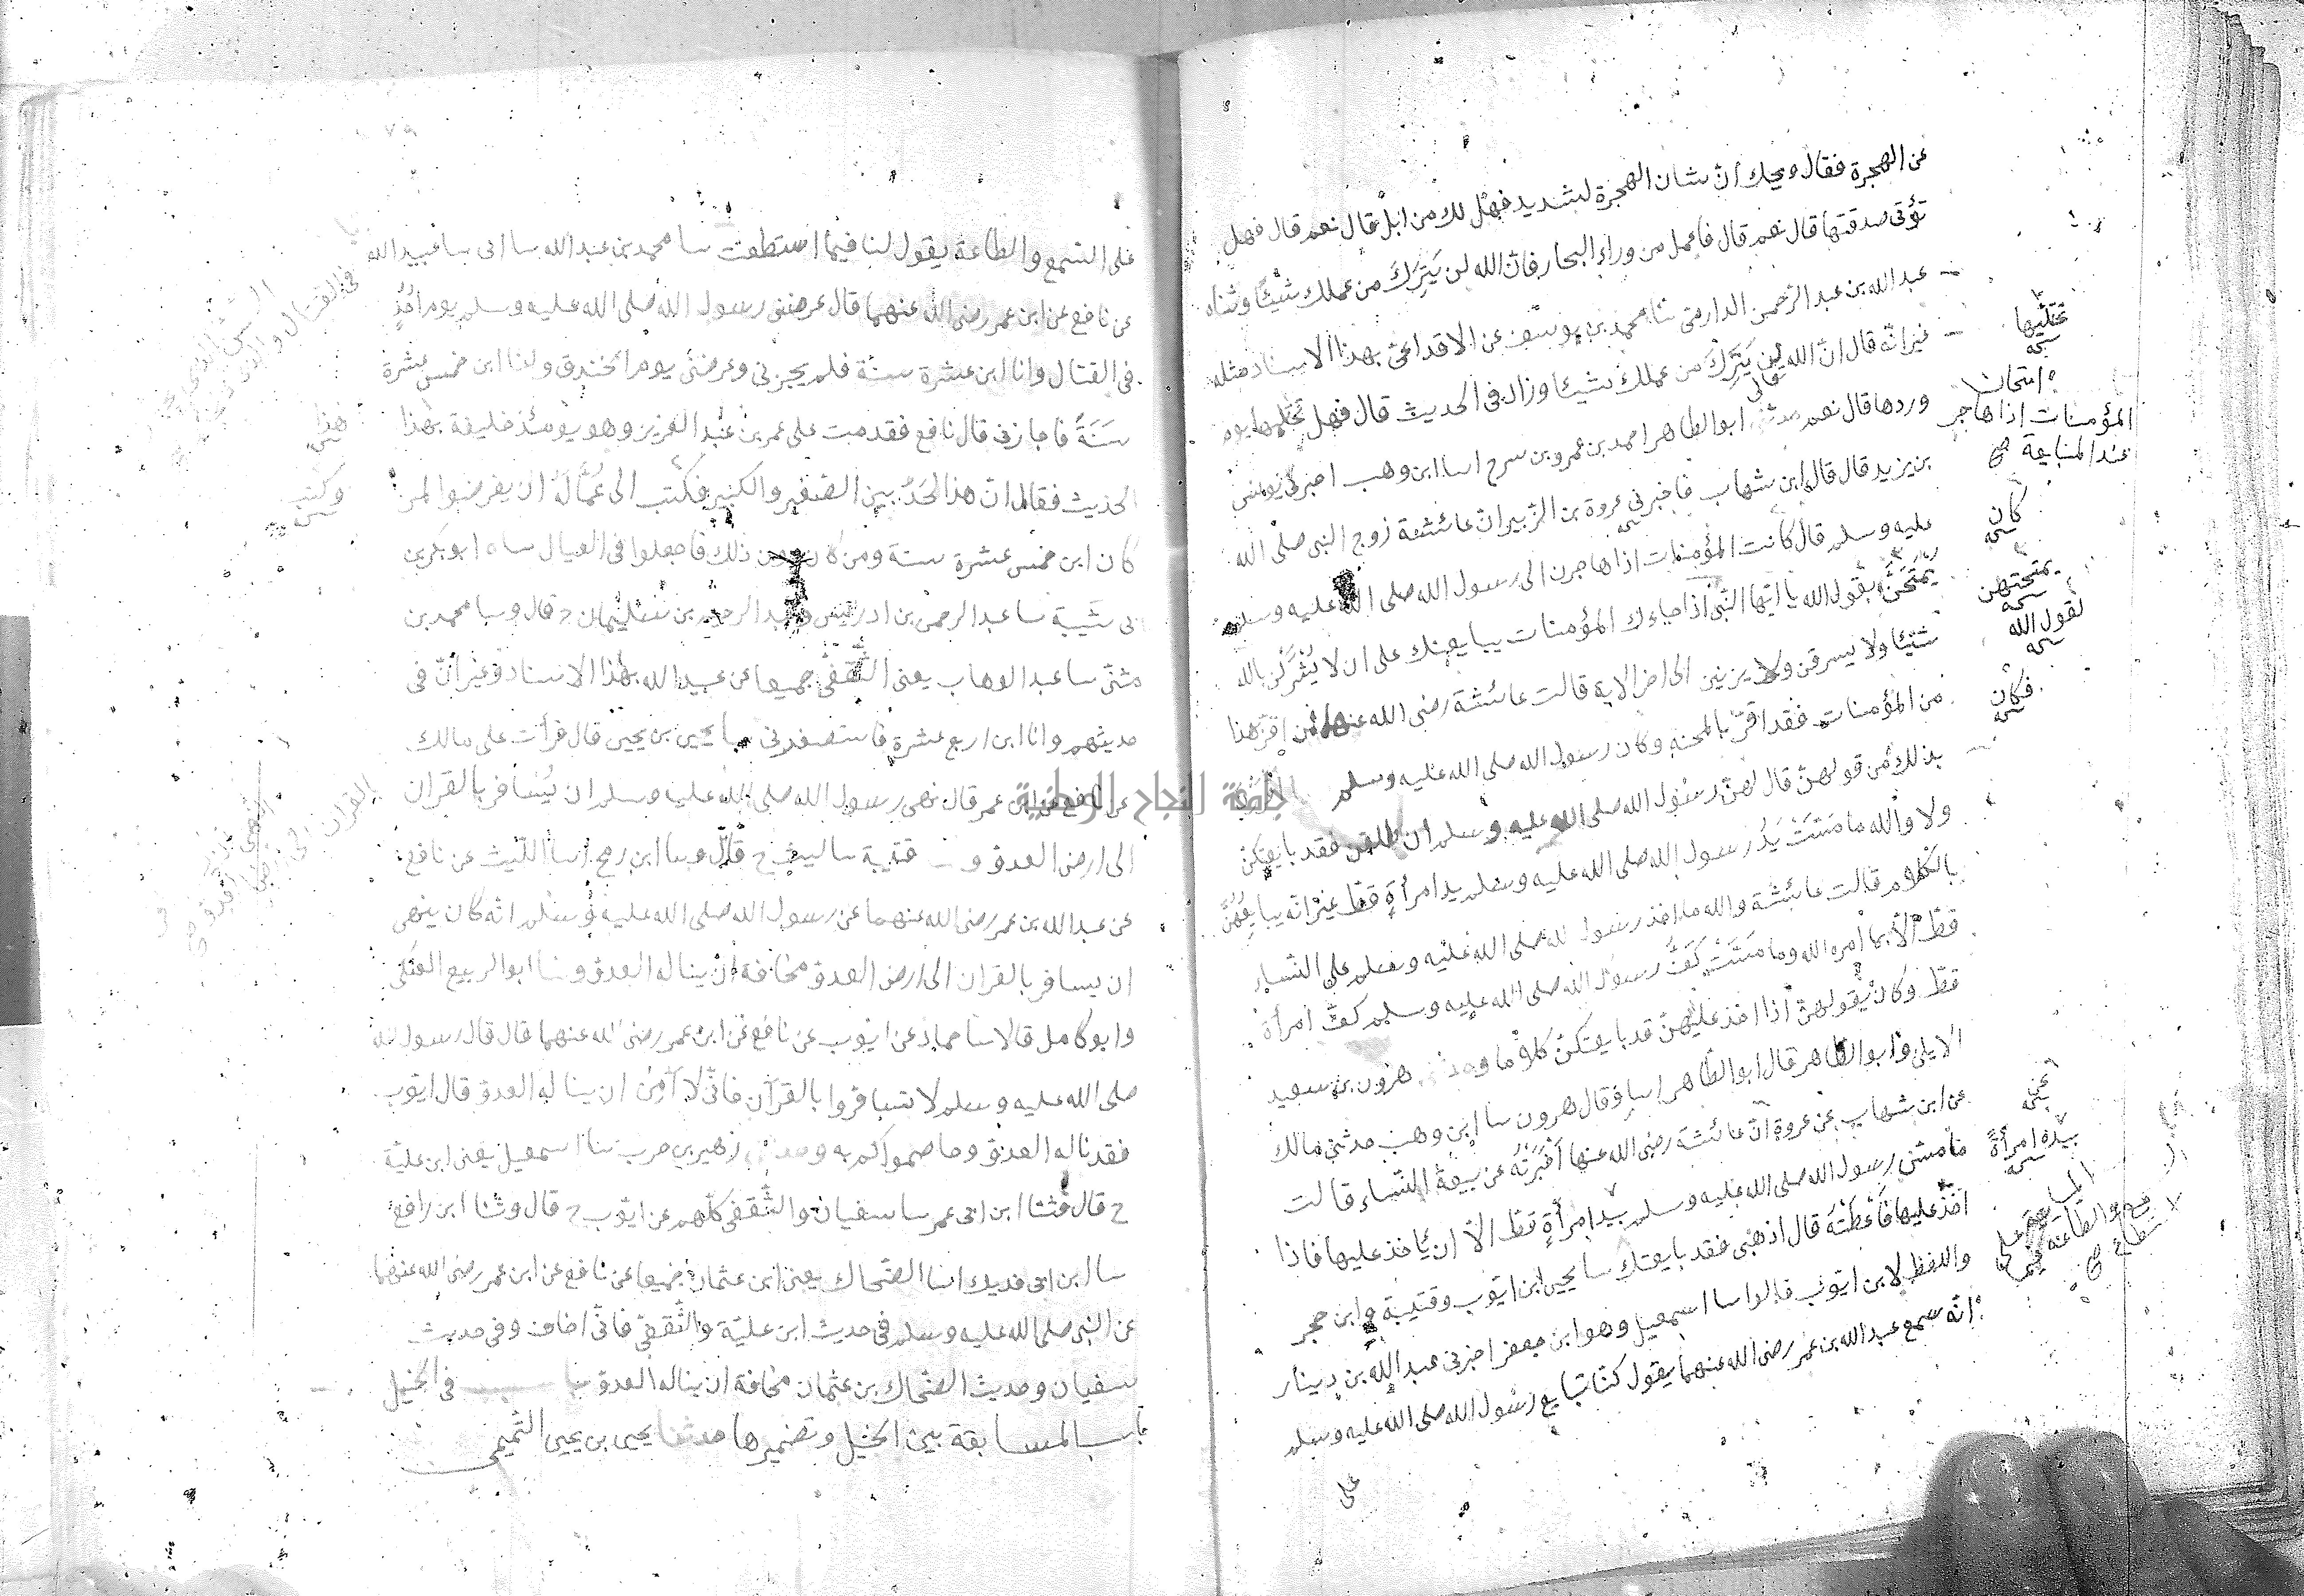 عن الهجرة فقال ويحك انّ شان الهجرة لشديد فهل لك من ابل قال نعم قال فهل
تؤتى صدقتها قال نعم قال فاعمل من وراء البحار فان الله لن يَتِرَكَ من عملك شيئا وثناه
عبد الله بن عبد الرحمن الدارمى ثنا محمد بن يوسف عن الاوزاعى بهذا الاسناد مثله
غير انّه قال انّ الله لن يَتِرَكَ من عملك شيئا وزاد فى الحديث قال فهل تحلبها يوم
وردها قال نعم ابو الطاهر احمد بن عمرو بن سرح اسا ابن وهب اخبرنى يونس
بن يزيد قال قال ابن شهاب فاخبرنى عروة بن الزّبير ان عائشة زوج النبى صلى الله
عليه وسلم قال كانت المؤمنات اذا هاجرن الى رسول الله صلى الله عليه وسلم
يُمْتَحَنَّ بقول الله يا ايّها النّبى اذا جاءك المؤمنات يبايعنك على ان لا يُشْرِكْنَ بالله
شيئا ولا يسرقن ولا يزنين الى اخر الاية قالت عائشة رضى الله عنها فمن اقرّ بهذا
من المؤمنات فقد اقرّ بالمحنة وكان رسول الله صلى الله عليه وسلم
بذلك من قولهنّ قال لهنّ رسول الله صلى الله عليه وسلم انطلقن فقد بايعتكنّ
ولا والله ما مَسَّتْ يَدُ رسول الله صلى الله عليه وسلم يد امرأةٍ قطّ غير انّه يبايعُهُنَّ
بالكلام قالت عائشة والله ما اخذ رسول الله صلى الله عليه وسلم على النساء
قطّ الّا بما امره الله وما مَسَّتْ كَفُّ رسول الله صلى الله عليه وسلم كفّ امرأة
قطّ وكان يقول لهنّ اذا اخذ عليهنّ قد بايعتكنّ كلاما هرون بن سعيد
الايلى وابو الطاهر قال ابو الطاهر اسا وقال هرون سا ابن وهب حدثنى مالك
عن ابن شهاب عن عروة انّ عائشة رضى الله عنها أَخْبَرَتْهُ عن بيعة النساء قالت
ما مسّ رسول الله صلى الله عليه وسلم بيد امرأةٍ قطّ الّا ان يأخذ عليها فاذا
اخذ عليها فَأَعْطَتْهُ قال اذهبى فقد بايعتك سا يحيى ابن ايّوب وقتيبة وابن حجر
واللفظ لابن ايّوب قالوا سا اسمعيل وهو ابن جعفر اخبرنى عبد الله بن دينار
انّه سمع عبد الله بن عمر رضى الله عنهما يقول كنّا نبايع رسول الله صلى الله عليه وسلم
على
امتحان
المؤمنات اذا هاجر
عند المبايعة
كان
يمتحنهن
لقول الله
فكان
بيده امرأةً
على السّمع والطاعة يقول لنا فيما استطعت سا محمد بن عبد الله سا ابى سا عبيد الله
عن نافع عن ابن عمر رضى الله عنهما قال عرضنى رسول الله صلى الله عليه وسلم يوم اُحُدٍ
فى القتال وانا ابن عشرة سنة فلم يجزنى وعرضنى يوم الخندق وانا ابن خمس عشرة
سَنَةً فاجازنى قال نافع فقدمت على عمر بن عبد العزيز وهو يومئذ خليفة بهذا
الحديث فقال انّ هذا الحَدُّ بين الصّغير والكبير فكتب الى عُمَّالَهُ ان يفرضوا لمن
كان ابن خمس عشرة سنة ومن كان دون ذلك فاجعلوا فى العيال ساه ابو بكر بن
ابى شَيْبَة سا عبد الرحمن بن ادريس وعبد الرحيم بن سليمان ح قال وسا محمد بن
مثنّى سا عبد الوهاب يعنى الثَّقَفى جميعا عن عبيد الله بهذا الاسناد وغير انّ فى
حديثهم وانا ابن اربع عشرة فاستصغرنى سا يحيى بن يحيى قال قرأت على مالك
عن نافع عن ابن عمر قال نهى رسول الله صلى الله عليه وسلم ان يُسَافر بالقران
الى ارض العدوّ و قتيبة سا ليث ح قال وسا ابن رمح اسا اللّيث عن نافع
عن عبد الله بن عمر رضى الله عنهما عن رسول الله صلى الله عليه وسلم انّه كان ينهى
ان يسافر بالقران الى ارض العدوّ مخافة ان يناله العدوّ وسا ابو الربيع العتكى
وابو كامل قالا سا حماد عن ايّوب عن نافع عن ابن عمر رضى الله عنهما قال قال رسول الله
صلى الله عليه وسلم لا تسافروا بالقرآن فانّى لا آمَنُ ان يناله العدوّ قال ايّوب
فقد ناله العدوّ وخاصموكم به زهير بن حرب سا اسمعيل يعنى ابن عليّة
ح قال وثنا ابن ابى عمر سا سفيان والثّقفى كلّهم عن ايّوب ح قال وثنا ابن رافع
سا ابن ابى فديك اسا الضّحاك يعنى ابن عثمان جميعا عن نافع عن ابن عمر رضى الله عنهما
عن النبى صلى الله عليه وسلم فى حديث ابن عليّة والثّقفى فانّى اخاف وفى حديث
سفيان وحديث الضّحاك بن عثمان مخافة ان يناله العدوّ فى الخيل
باب المسابقة بين الخيل وتضميرها حدثنا يحيى بن يحيى التّميمى
هذا
وكتب
جامعة النجاح الوطنية